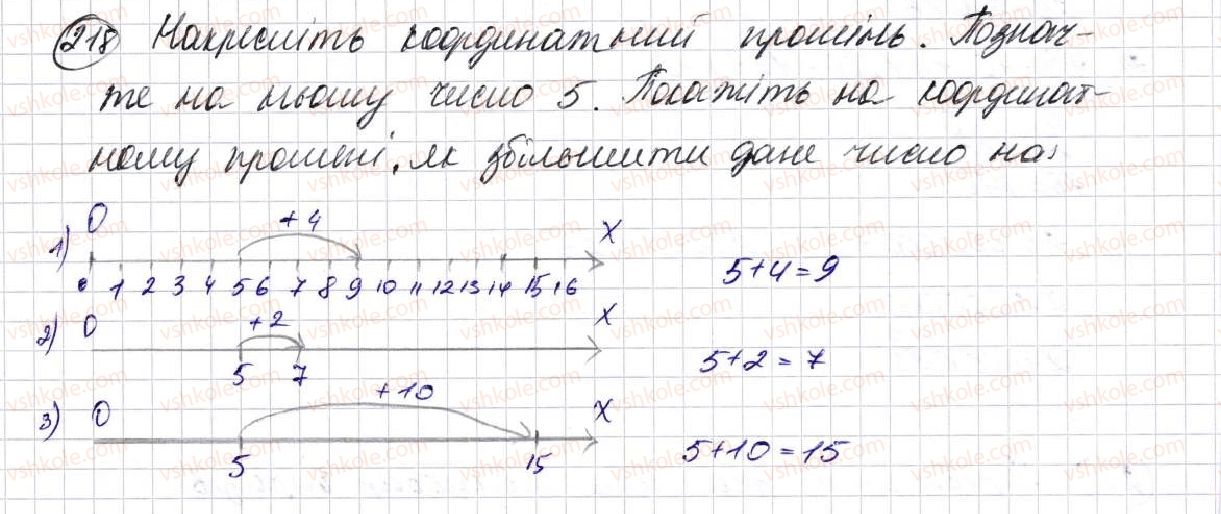 218 Накресліть координатний промінь. Познач-
те на ньому число 5. Покажіть на координат-
ному промені, як збільшити дане число на:
1) O +4 X
0 1 2 3 4 5 6 7 8 9 10 11 12 13 14 15 16
5+4=9
2) O +2 X
5 7
5+2=7
3) O +10 X
5 15
5+10=15
vshkole.com